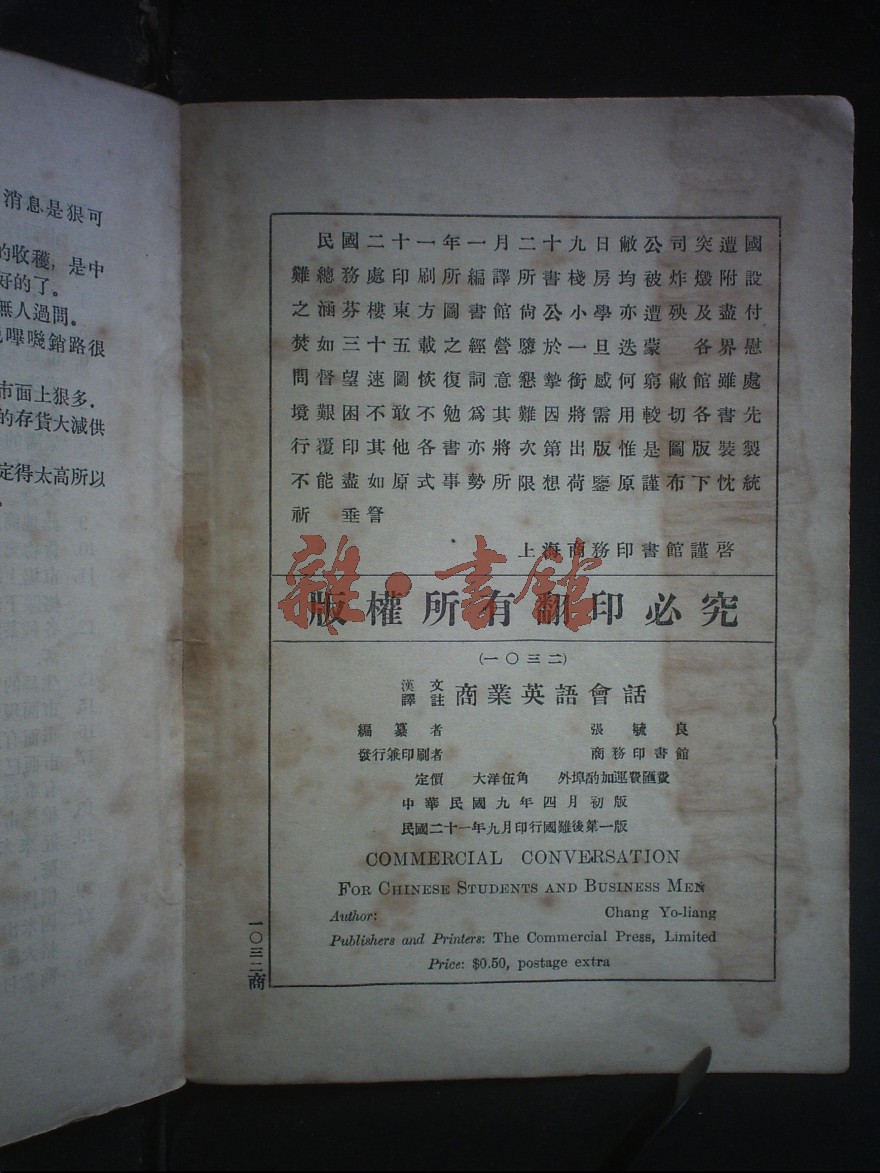 消息是狠可
的收穫,是中
好的了。
無人過問。
嗶嘰銷路很
市面上狠多.
的存貨大減供
定得太高所以
民國二十一年一月二十九日敝公司突遭國
難總務處印刷所編譯所書棧房均被炸燬附設
之涵芬樓東方圖書館尙公小學亦遭殃及盡付
焚如三十五載之經營隳於一旦迭蒙 各界慰
問督望速圖恢復詞意懇摯銜感何窮敝館雖處
境艱困不敢不勉爲其難因將需用較切各書先
行覆印其他各書亦將次第出版惟是圖版裝製
不能盡如原式事勢所限想荷鑒原謹布下忱統
祈 垂詧
上海商務印書館謹啓
雜·書館
版權所有翻印必究
(一〇三二)
漢文譯註 商業英語會話
編纂者 張毓良
發行兼印刷者 商務印書館
定價 大洋伍角 外埠酌加運費匯費
中華民國九年四月初版
民國二十一年九月印行國難後第一版
COMMERCIAL CONVERSATION
FOR CHINESE STUDENTS AND BUSINESS MEN
Author: Chang Yo-liang
Publishers and Printers: The Commercial Press, Limited
Price: $0.50, postage extra
一〇三二商